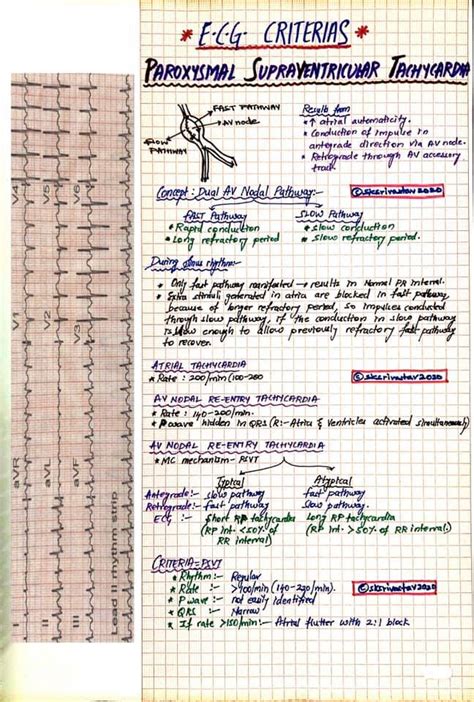 * E.C.G. CRITERIAS *
PAROXYSMAL SUPRAVENTRICULAR TACHYCARDIA
FAST PATHWAY
AV node.
SLOW PATHWAY
Results from
* ↑ atrial automaticity.
* Conduction of impulse in
antegrade direction via AV node.
* Retrograde through AV accessory
track.
Concept: Dual AV Nodal Pathway:-
©sksrivastav2020
FAST Pathway
* Rapid conduction
* Long refractory period
SLOW Pathway
* slow conduction
* slow refractory period.
During sinus rhythm:-
* Only fast pathway manifested → results in Normal PR interval.
* Extra stimuli generated in atria are blocked in fast pathway,
because of longer refractory period, so impulses conducted
through slow pathway, if the conduction in slow pathway
is slow enough to allow previously refractory fast pathway
to recover.
ATRIAL TACHYCARDIA
* Rate: 200/min (100-280
©sksrivastav2020
AV NODAL RE-ENTRY TACHYCARDIA
* Rate: 140-200/min.
* P wave hidden in QRS (R:- Atria & Ventricles activated simultaneously)
AV NODAL RE-ENTRY TACHYCARDIA
* MC mechanism- PSVT
Typical
Atypical
Antegrade:- slow pathway fast pathway
Retrograde:- fast pathway Slow pathway.
ECG :- Short RP tachycardia Long RP tachycardia
(RP int. <50% of (RP int. >50% of RR interval.)
RR interval)
CRITERIA = PSVT
* Rhythm:- Regular
* Rate :- >100/min (140-220/min).
* P wave :- not easily Identified
* QRS :- Narrow
* If rate >150/min:- Atrial flutter with 2:1 block
©sksrivastav2020
V4
V5
V6
V1
V2
V3
aVR
aVL
aVF
I
II
III
Lead II rhythm strip